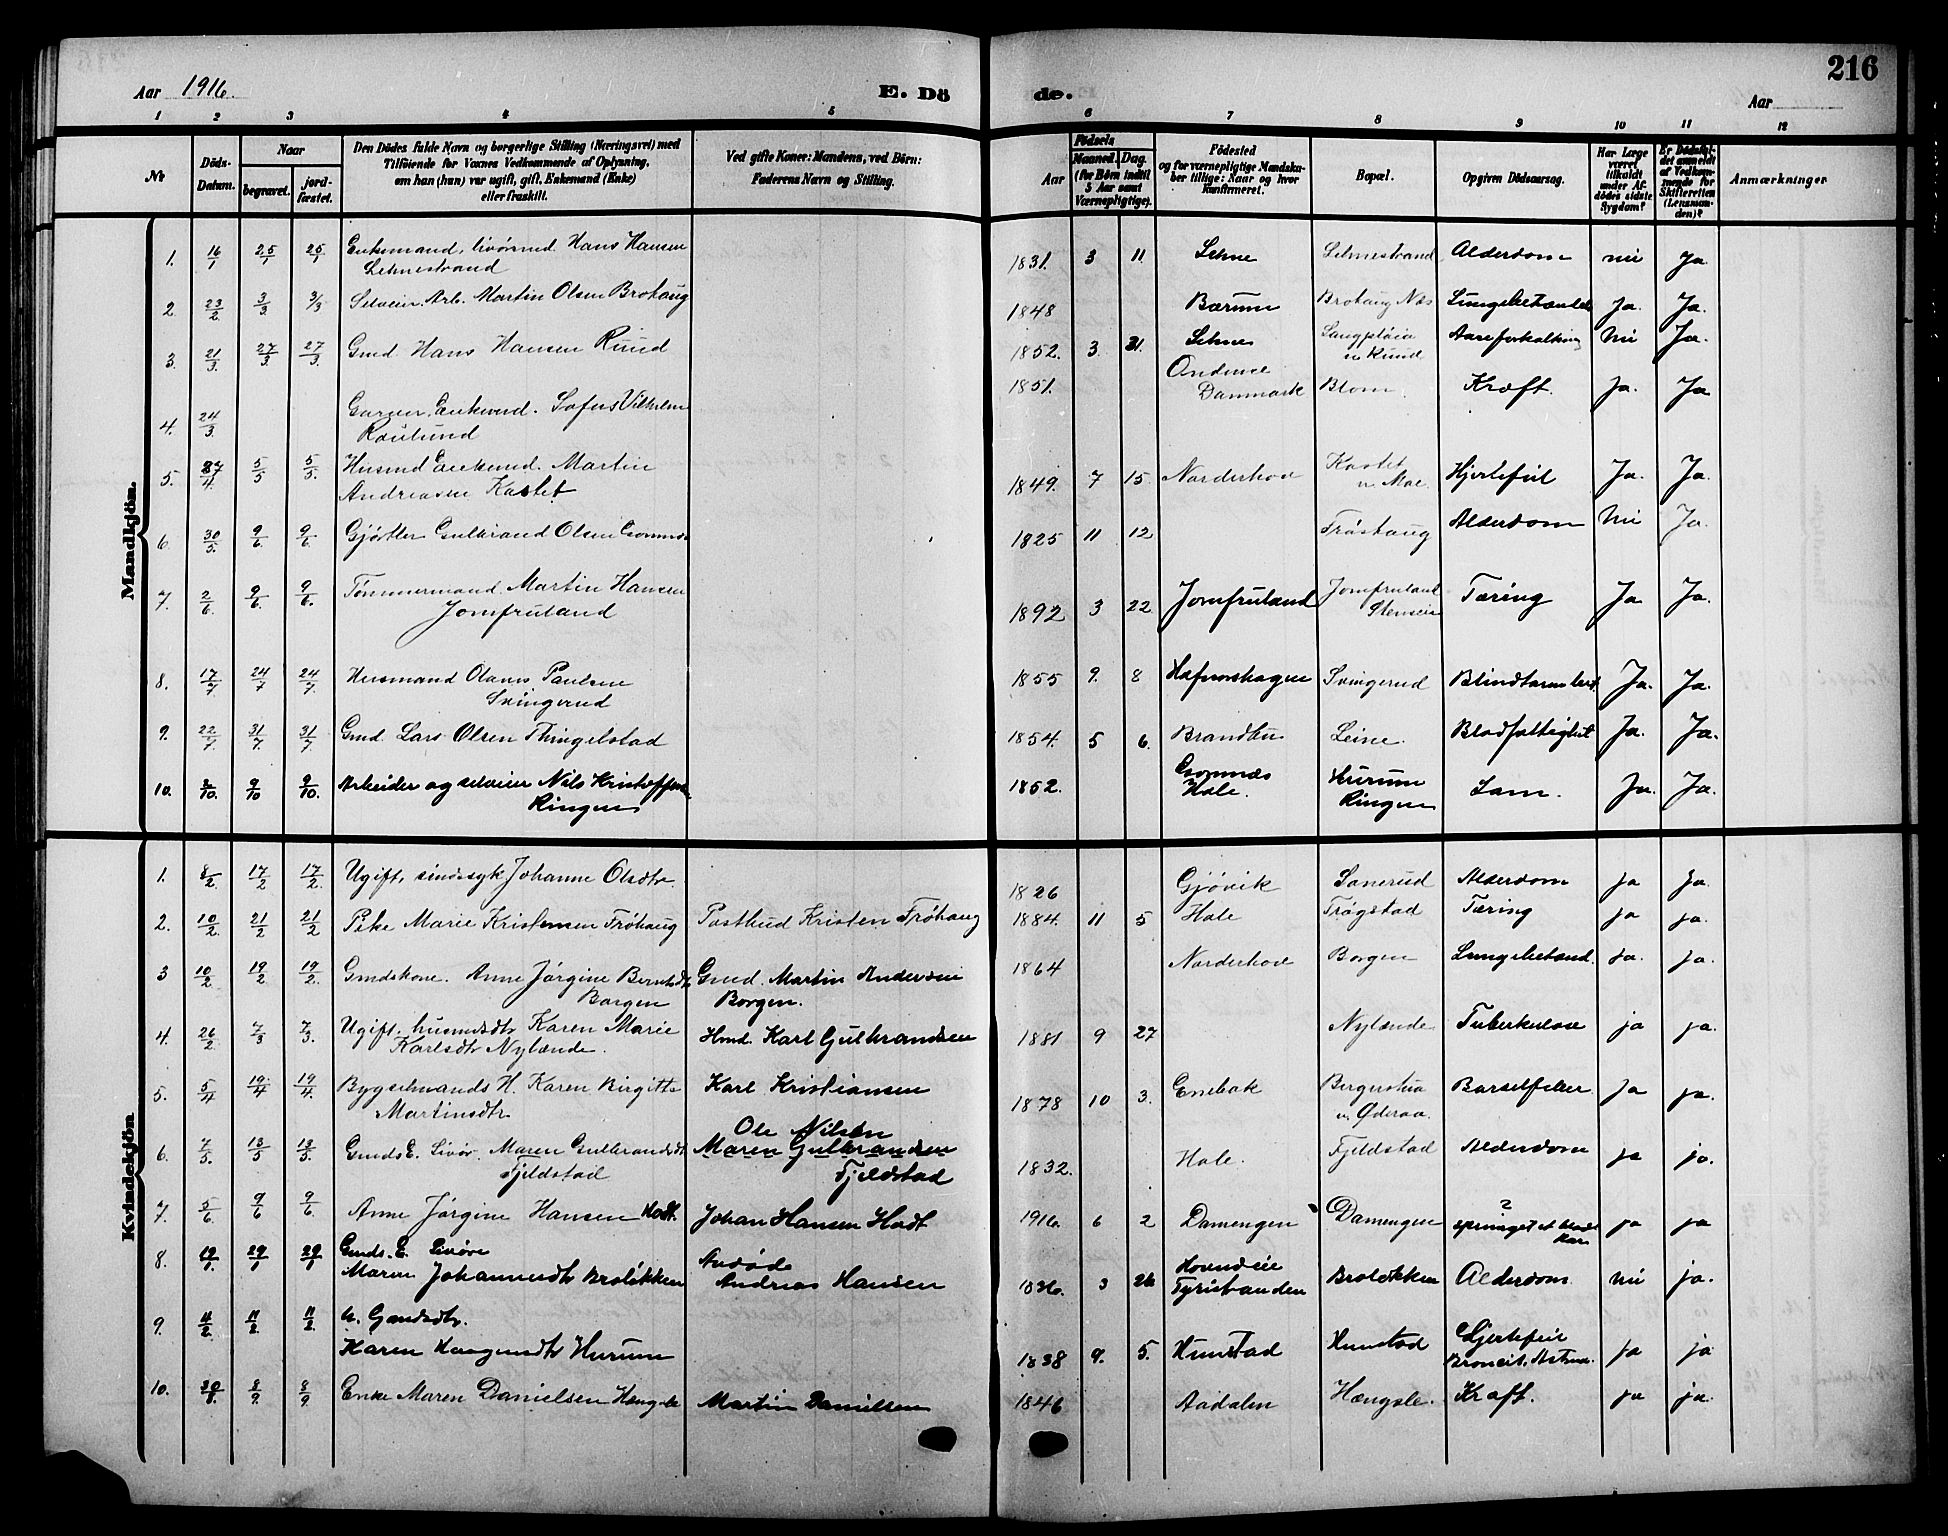 Aar 1916.
E. Dö
de.
216
Aar
1 2 3 4 5 6 7 8 9 10 11 12
No
Döds-Datum.
Naar
begravet.
jord-fæstet.
Den Dödes fulde Navn og borgerlige Stilling (Næringsvei) med
Tilföiende for Voxnes Vedkommende af Oplysning,
om han (hun) var ugift, gift, Enkemand (Enke)
eller fraskilt.
Ved gifte Koner: Mandens, ved Börn:
Faderens Navn og Stilling.
Aar
Födsels
Maaned. Dag.
(for Börn indtil
5 Aar samt
Værnepligtige).
Födested
og for værnepligtige Mandsku-
ber tillige: Naar og hvor
Konfirmeret.
Bopæl.
Opgiven Dödsaarsag.
Har Læge
været
tilkaldt
under Af-
dödes sidste
Sygdom?
Er Dödsfal-
det anmeldt
af Vedkom-
mende for
Skifteretten
(Lensman-
den)?
Anmærkninger
Mandkjön.
1. 16/1 25/1 25/1 Enkemand, Hans Hansen 1831. 3 11. Sehne Sehnestrand Alderdom nei ja
Sehnestrand
2. 23/2 3/3 3/3 Selveier. Arb. Martin Olsen Brohaug 1848 Bærum Brohaug Næs Ja. Ja.
3. 21/3 27/3 27/3 Gmd Hans Hansen Ruud 1852. 3 31. Sehne Aareforkalkning Nei Ja.
4. 24/3 Sofus Vilhelm 1851. Danmark Blom. Kræft. Ja. Ja
5. /4 5/5 5/5. Husmd Enkemd. Martin 1849. 7 15. Norderhov Kastet Hjertefeil Ja. Ja.
Andreasen Kastet
6. 30/5 9/6 9/6 Gjørtler Gulbrand Olsen 1825 11 12 Frøshaug Alderdom Nei Ja.
7. 2/6 9/6 9/6. Tømmermand Martin Hansen 1892 3 22 Jomfruland Jomfruland Tæring Ja Ja.
Jomfruland
8. 17/7 24/7 24/7. Husmand Olaves Paulsen 1855 9. 8 Svingerud Ja. Ja.
Svingerud
9. 22/7 31/7. 31/7 Gmd. Lars Olsen Thingelstad 1854. 5 6. Brandbu Leine. Blodfattighet Ja. Ja.
10. /10. 9/10 9/10. Arbeider og selveier Nils Kristoffersen 1852. Hole. Hurum Lam. Ja. Ja.
Ringen Ringen
Kvindekjön
1. 8/2 17/2 17/2. Ugift, sindssyk Johanne Olsdtr. 1826 Gjøvik Sonerud Alderdom ja Ja.
2. 10/2. 21/2 21/2 Pike Marie Kristensen Frøhaug Postbud Kristen Frøhaug 1884. 11 5 Hole Frøgstad Tæring ja ja.
3 10/2 19/2 19/2. Gmdskone. Anne Jørgine Berntsdtr Gmd. Martin Andersen 1864 Norderhov Borgen Lungebetænd. Ja. ja.
Borgen Borgen.
4. 26/2 7/3 7/3. Ugift. husmdsdtr Karen Marie Hmd. Karl Gulbrandsen 1881 9 27 Nylænde Tuberkulose ja ja.
Karlsdtr Nylænde.
5. 5/4 19/4 19/4. Bygselmands H. Karen Birgitte Karl Kristiansen 1878 10 3. Enebak Barselfeber Ja ja.
Martinsdtr v. Øderaa.
Ole Nilsen
6. 7/5. 13/5 13/5. Gmds E. Livør. Maren Gulbrandsdtr Maren Gulbrandsen 1832. Hole. Fjeldstad Alderdom ja ja.
Fjeldstad Fjeldstad
7. 5/6 9/6 9/6. Anne Jørgine Hansen Hodt. Johan Hansen Hodt 1916. 6 2 Damengen Damengen ? ja ja
springet et blod
kar
8. 19/1. 29/1 29/1 Gmds. E. Livøre Andøde
Maren Johannesdtr Broløkken Andreas Hansen 1836. 3 26 Tyristranden Broløkken Alderdom. Nei ja.
9. 4/2. 11/2 11/2.
Karen Haagensdtr Hurum 1838 9. 5. Hunstad Hunstad Hjertefeil ja ja
10. 30/8. 8/9. 8/9 Enke Maren Danielsen Hængsle Martin Danielsen 1846 Aadalen Hængsle. Kræft. ja ja.